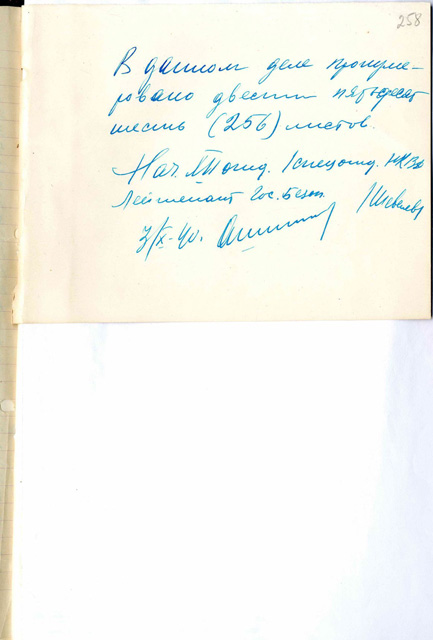 258
В данном деле пронуме-
ровано двести пятьдесят
шесть (256) листов.
Нач. отд. 1 спецотд. НКВД
Лейтенант Гос. Безоп.
3/X-40.